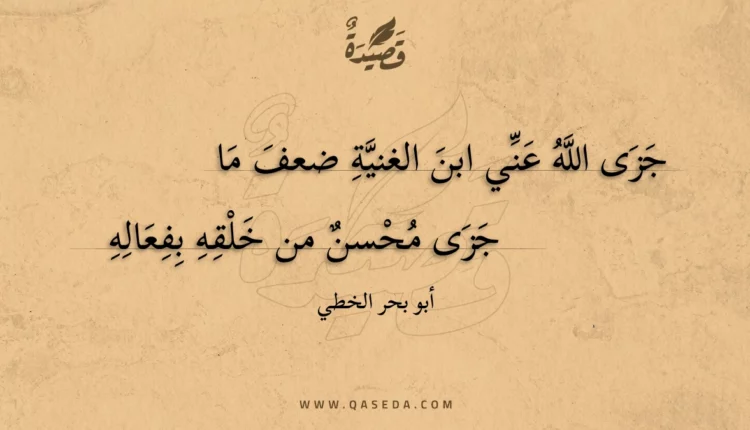 قَصِيْدَةٌ
جَزَى اللَّهُ عَنِّي ابنَ الغنيَّةِ ضعفَ مَا
جَزَى مُحْسنٌ من خَلْقِهِ بِفِعَالِهِ
أبو بحر الخطي
WWW.QASEDA.COM